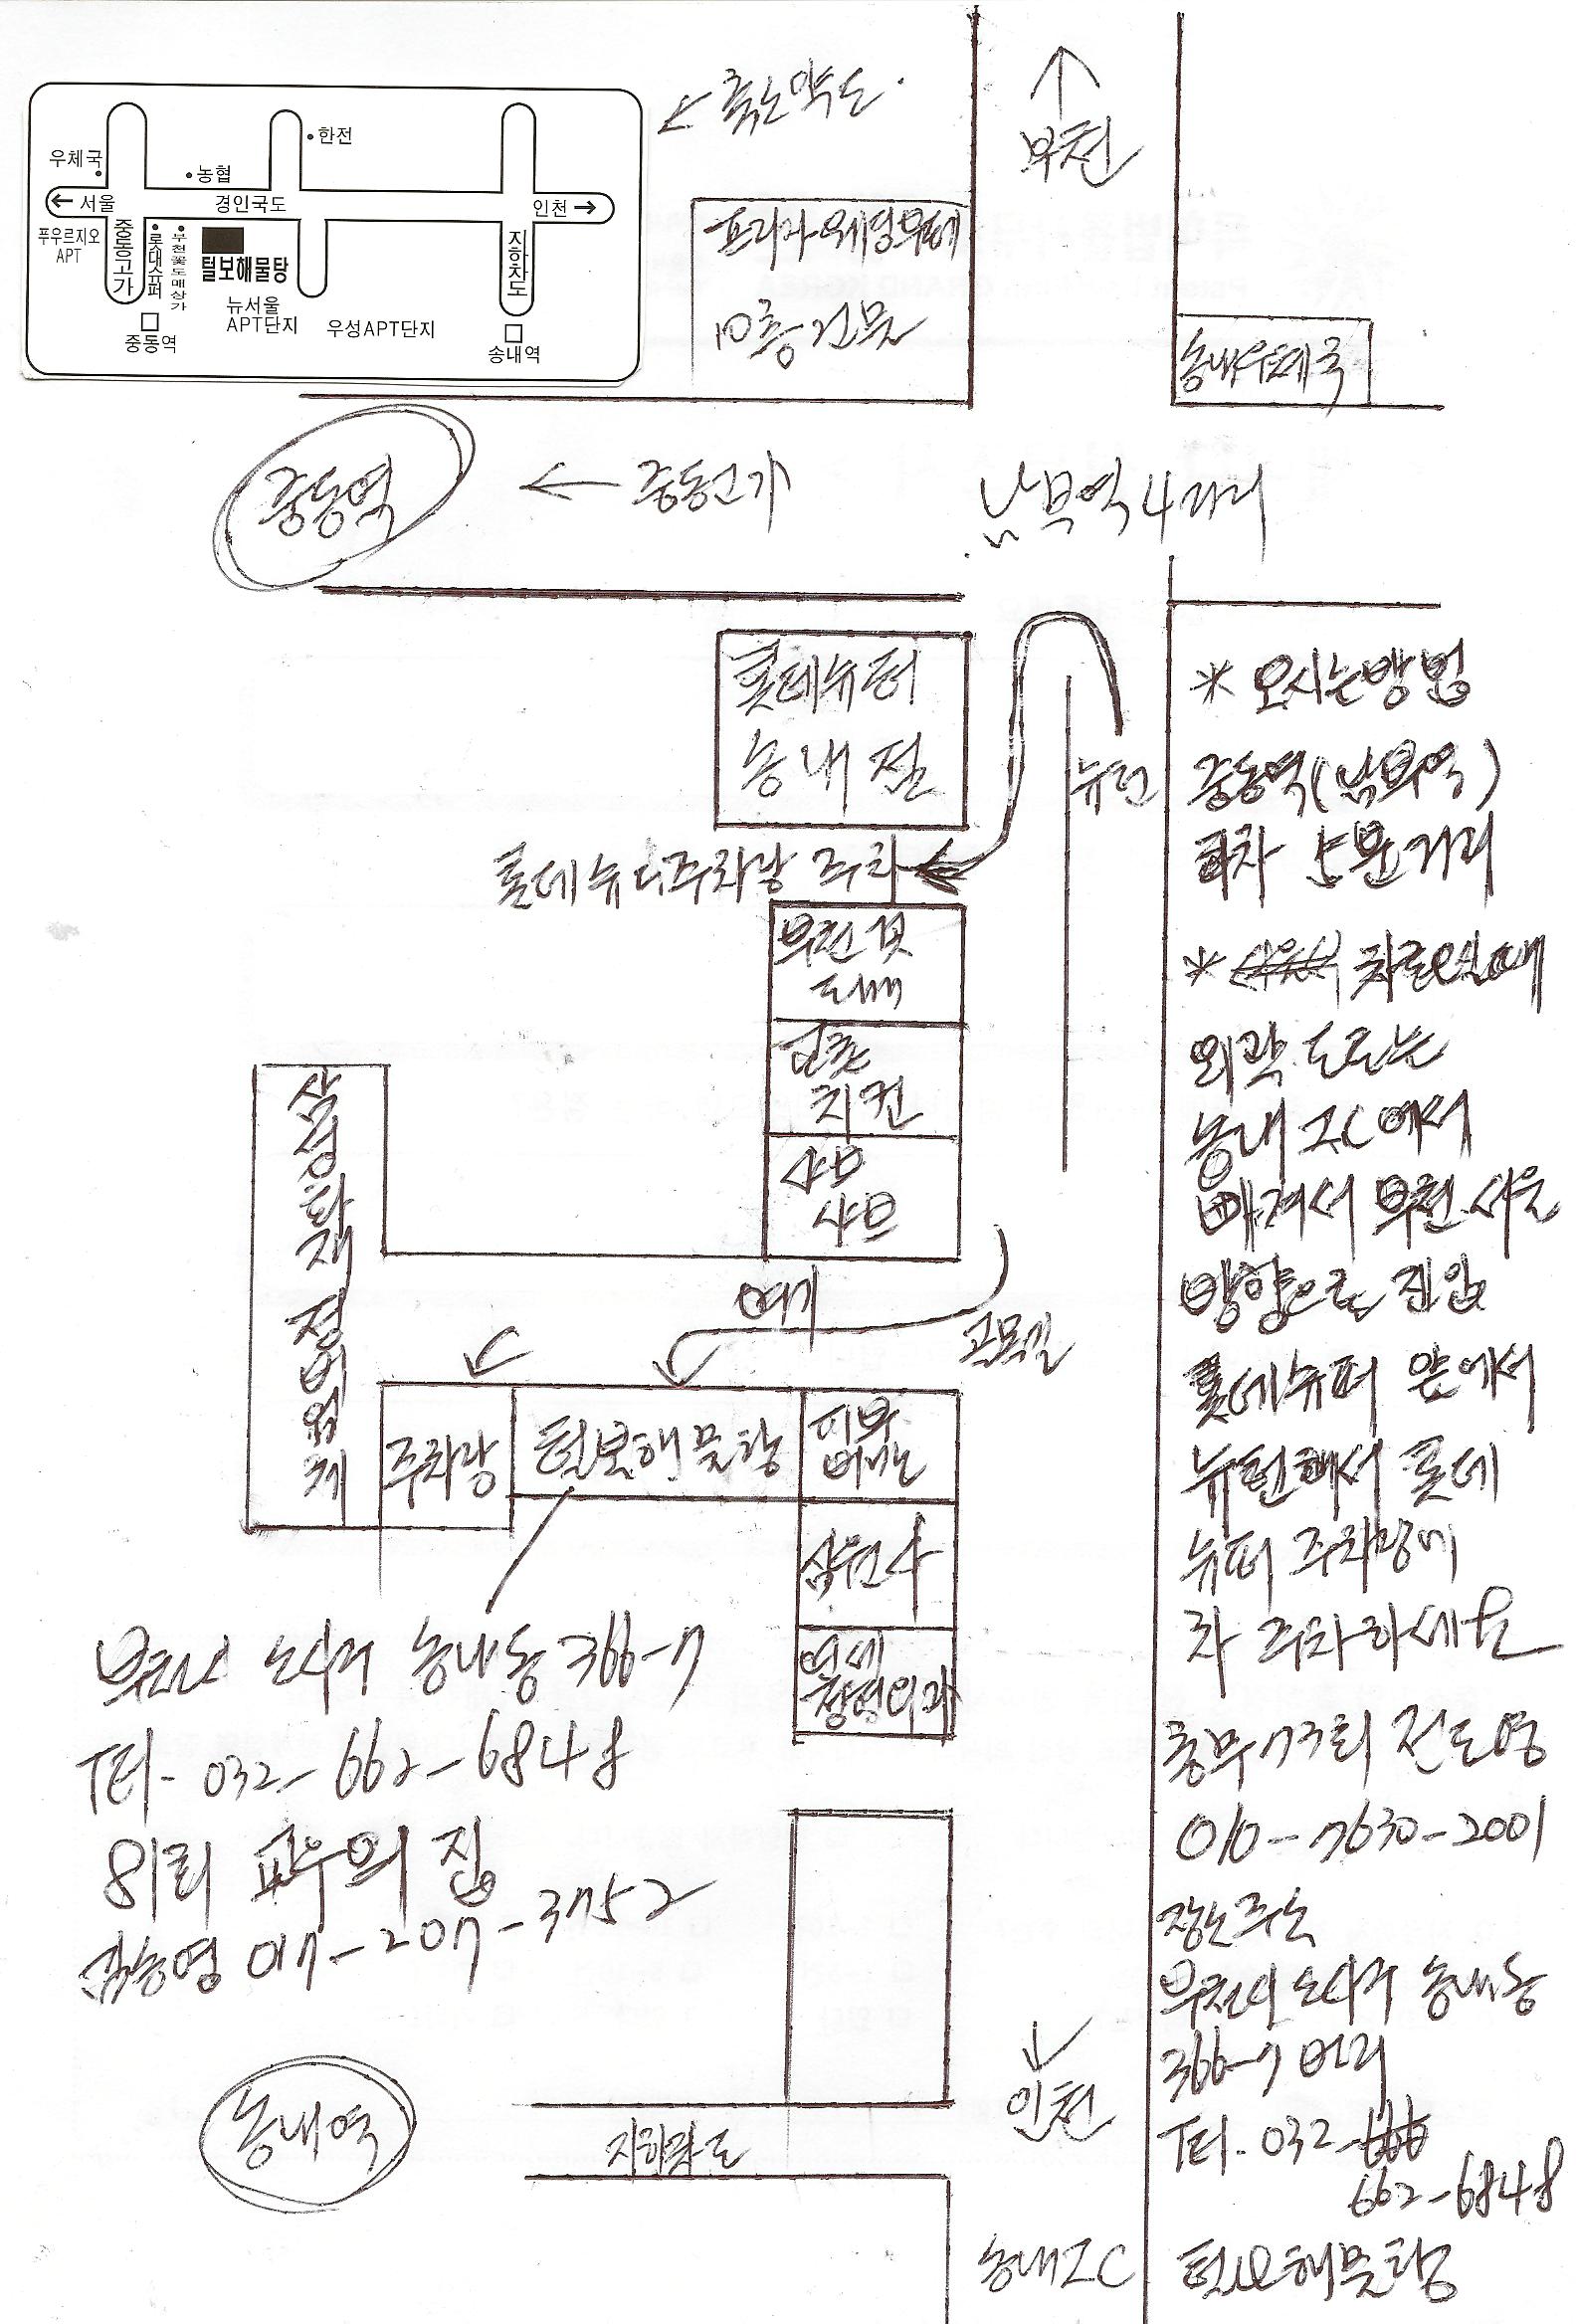 ← 축소약도.
↑
부천
우체국
·한전
·농협
← 서울
경인국도
인천 →
푸우르지오
APT
중동고가
롯대슈퍼
부천꽃도매상가
털보해물탕
지하차도
뉴서울
APT단지
우성APT단지
중동역
송내역
프리마웨딩부페
10층건물
송내우체국
중동역
← 중동고가
남부역 4거리
롯데슈퍼
송내점
유턴
롯데슈퍼주차장 주차
부천꽃
도매
치킨
샤브
샤브
여기
골목길
삼성화재 정비업체
주차장
털보해물탕
피부
비뇨
삼원사
연세
정형외과
부천시 소사구 송내동 366-7
TEL- 032-662-6848
81회 교우의 집
김송영 017-207-3752
송내역
지하차도
↓
인천
송내IC
* 오시는방법
중동역(남부역)
하차 5분거리
* 차로오실때
외곽도로는
송내 IC에서
빠져서 부천.서울
방향으로 진입
롯데슈퍼 앞에서
유턴해서 롯데
슈퍼 주차장에
차 주차하세요
총무 73회 전도영
010-7630-2001
장소주소
부천시 소사구 송내동
366-7 번지
TEL- 032-
662-6848
털보해물탕